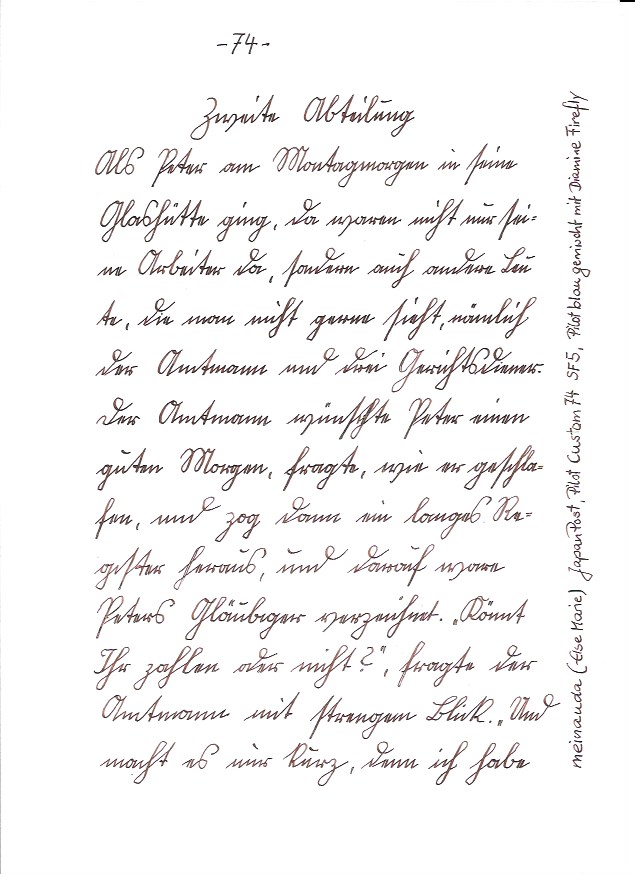 -74-
Zweite Abteilung
Als Peter am Montagmorgen in seine
Glashütte ging, da waren nicht nur sei=
ne Arbeiter da, sondern auch andere Leu
te, die man nicht gerne sieht, nämlich
der Amtmann und drei Gerichtsdiener.
Der Amtmann wünschte Peter einen
guten Morgen, fragte, wie er geschla=
fen, und zog dann ein langes Re=
gister heraus, und darauf ware
Peters Gläubiger verzeichnet. „Könnt
Ihr zahlen oder nicht?", fragte der
Amtmann mit strengem Blick. „Und
macht es nur kurz, denn ich habe
meinauda (Else Marie) JapanPost, Pilot Custom 74 SF5, Pilot blau gemischt mit Diamine Firefly